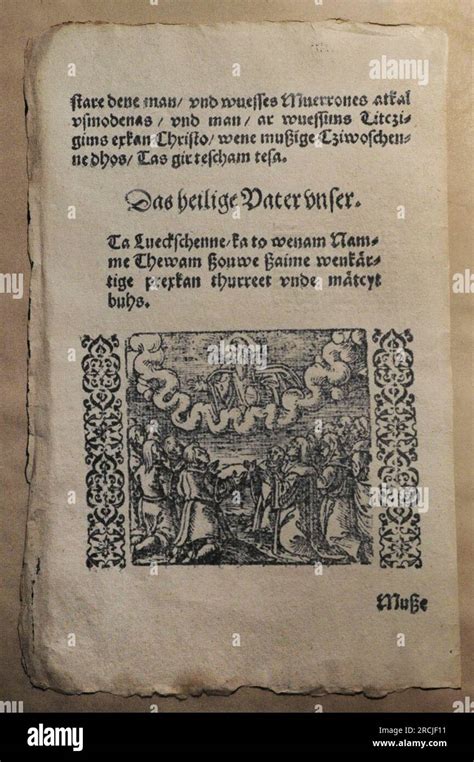 stare dene man/ vnd wuesses Muerrones atkal
vsmodenas/ vnd man/ ar wuessims Titczi-
gims exkan Christo/ wene mußige Cziwoschen-
ne dhos/ Tas gir tescham tesa.
Das heilige Vater vnser.
Ta Lueckschenne/ ka to wenam Nam-
me Thewam ßouwe ßaime wenkär-
tige prexkan thurreet vnde mätcyt
buhs.
Muße
alamy
Image ID: 2RCJF11
www.alamy.com